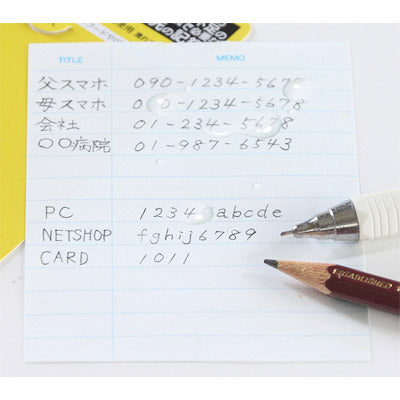 TITLE MEMO
父スマホ 090-1234-5678
母スマホ 090-1234-5678
会社 01-234-5678
〇〇病院 01-987-6543
PC 12345abcde
NETSHOP fghij6789
CARD 1011
ESTABLISHED